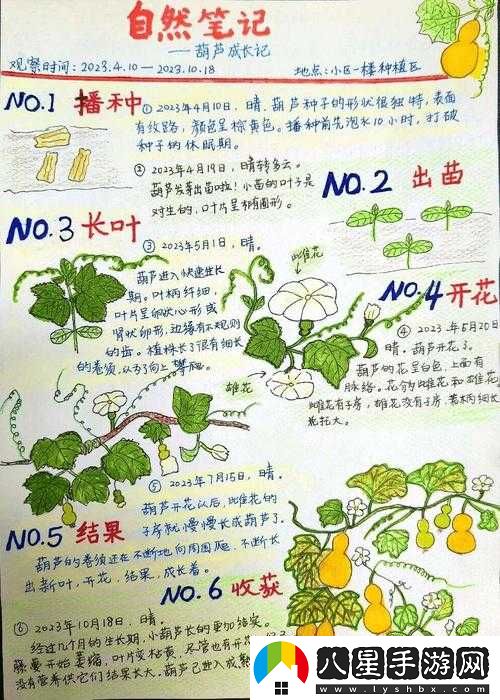 自然笔记
——葫芦成长记
观察时间：2023.4.10—2023.10.18
地点：小区一楼种植区
NO.1 播种
① 2023年4月10日，晴。葫芦种子的形状很独特，表面
有纹路，颜色呈棕黄色。播种前先泡水10小时，打破
种子的休眠期。
② 2023年4月19日，晴转多云。
葫芦发芽出苗啦！小苗的叶子是
对生的，叶片呈卵圆形。
NO.2 出苗
NO.3 长叶
③ 2023年5月1日，晴。
葫芦进入快速生长
期。叶柄纤细，
叶片呈卵状心形或
肾状卵形，边缘有不规则
的齿。植株长了很有细长
的卷须，从分向上攀爬。
雌花
雄花
NO.4 开花
④ 2023年5月20日
晴。葫芦开花了。
葫芦的花呈白色，上面有
脉络。花分雌花和雄花
雌花有子房，雄花没有子房，花柄细长
NO.5 结果
⑤ 2023年7月15日，晴。
葫芦开花以后，雌花的
子房就慢慢长成葫芦了。
葫芦的卷须还在不断地向周围爬，不断长
出新叶，开花，结果，成长着。
NO.6 收获
⑥ 2023年10月18日，晴。
经过几个月的生长期，小葫芦长的更加结实。
藤蔓开始萎缩，叶片变枯黄。尽管也有开花
没有营养供它们结果长大。葫芦已进入成熟
八星手游网
www.lyshbx.com